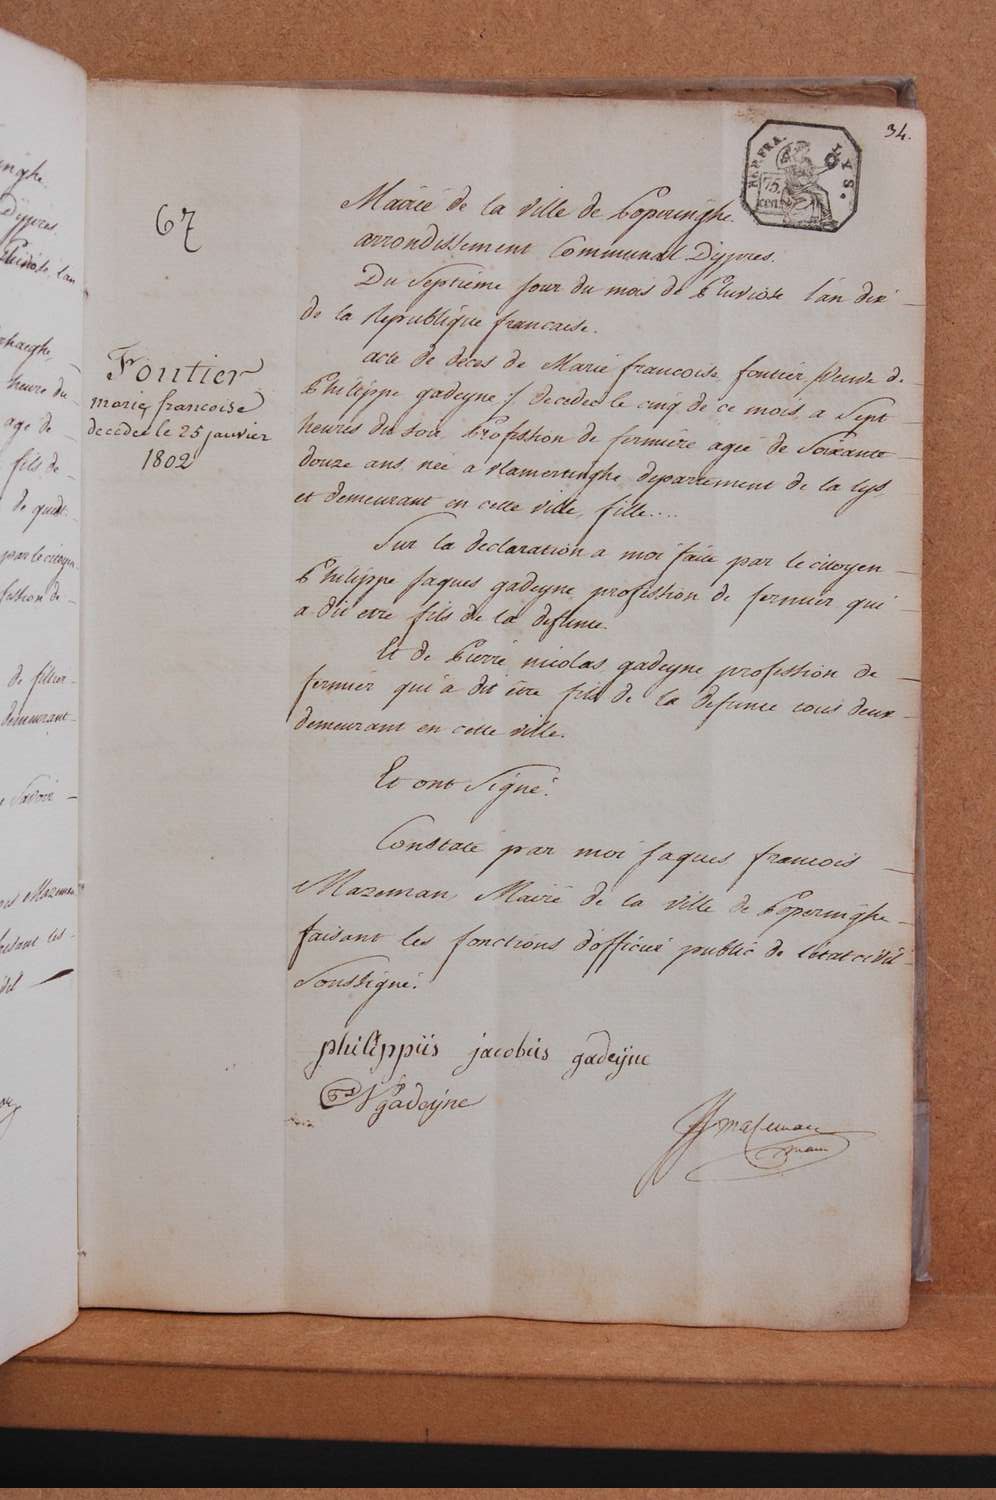 34.
REP. FRA. LYS.
75 cent.
67
Mairie de la ville de Poperinghe
arrondissement Communal D'ypres.
Du Septieme jour du mois de Pluviose l'an dix
de la Republique francaise.
acte de deces de Marie francoise foutier /Veuve de
Philippe gadeyne / decedee le cinq de ce mois a Sept
heures du soir, Profession de fermiere agee de Soixante
douze ans, née a vlamertinghe departement de la lys
et demeurant en cette ville, fille....
Foutier
marie francoise
decedee le 25 janvier
1802
Sur la declaration a moi faite par le citoyen
Philippe jaques gadeyne profession de fermier qui
a dit etre fils de la defunte.
Et de Pierre nicolas gadeyne profession de
fermier qui a dit etre fils de la defunte tous deux
demeurant en cette ville.
Et ont Signé.
Constaté par moi jaques francois
Mazeman Maire de la ville de Poperinghe
faisant les fonctions d'officier public de l'état civil
Soussigné.
philippus jacobus gadeyne
P N gadeyne
JF mazeman
maire